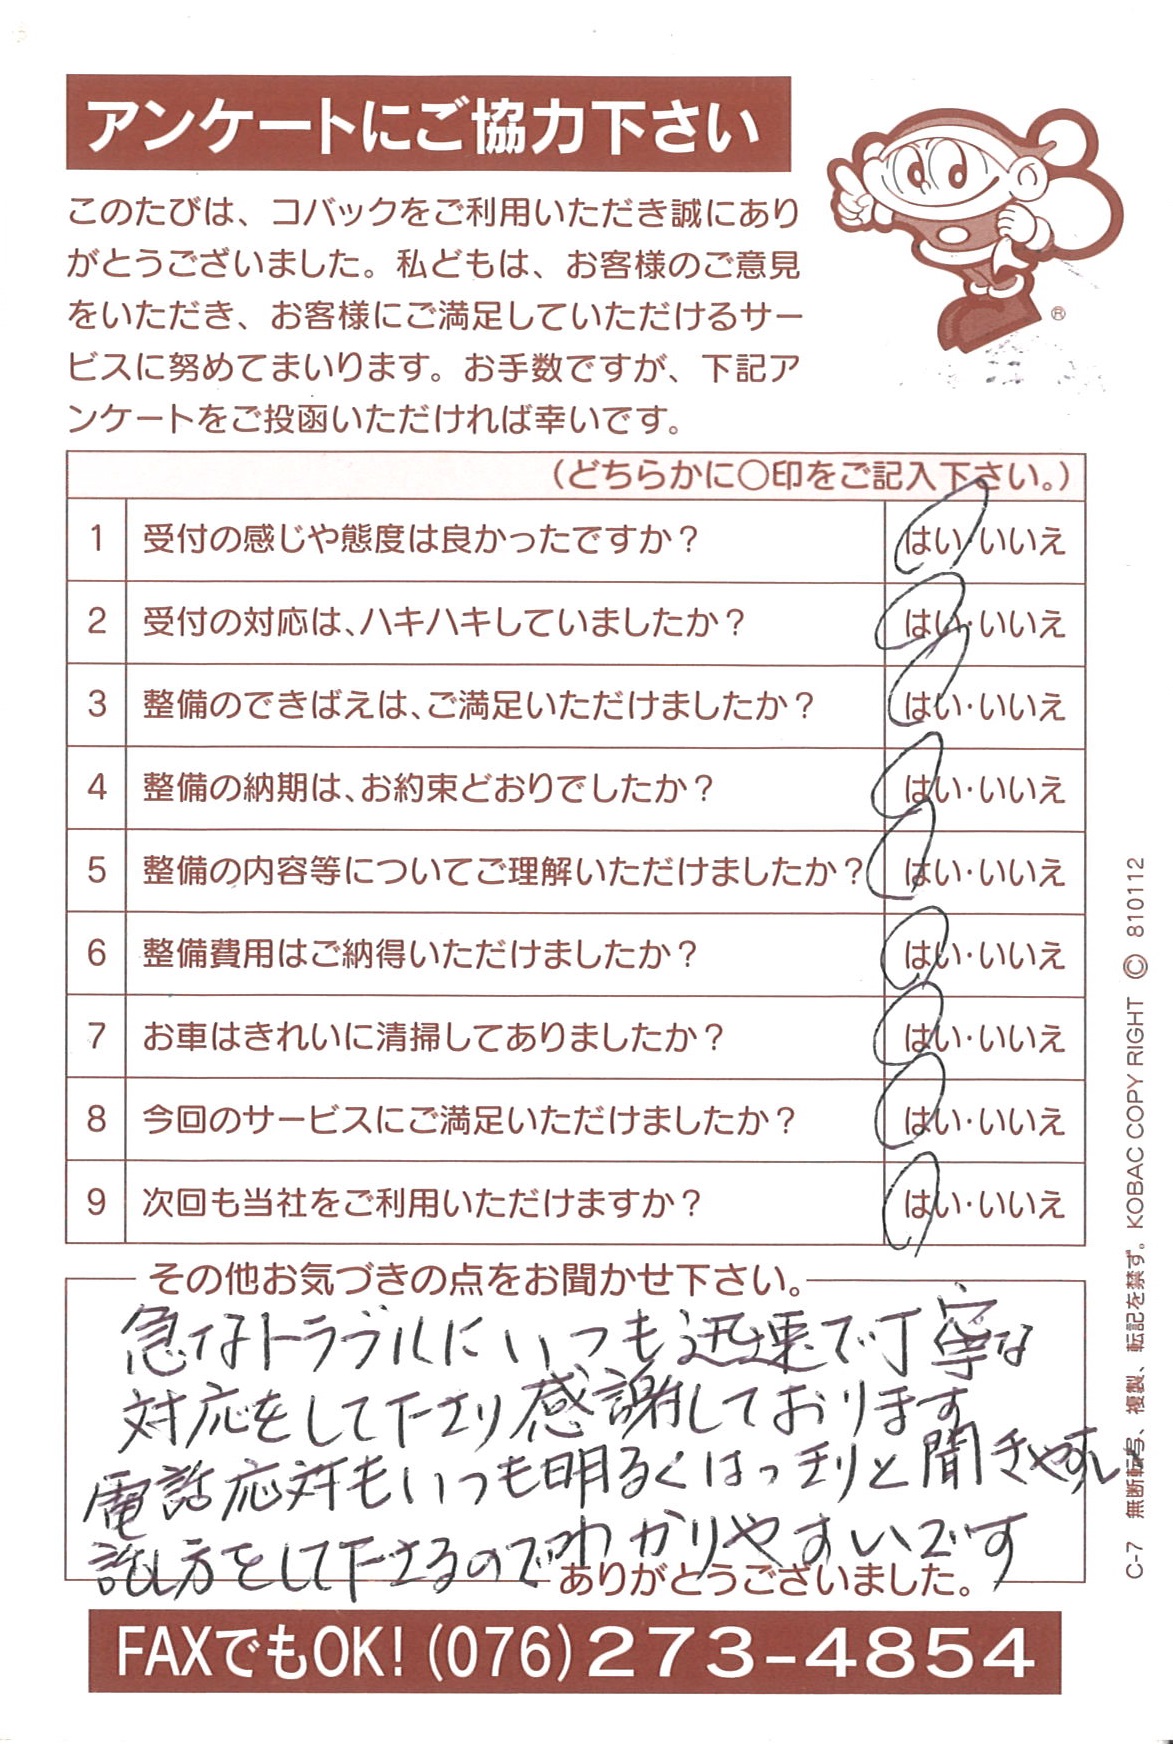 アンケートにご協力下さい
このたびは、コバックをご利用いただき誠にあり
がとうございました。私どもは、お客様のご意見
をいただき、お客様にご満足していただけるサー
ビスに努めてまいります。お手数ですが、下記ア
ンケートをご投函いただければ幸いです。
®
(どちらかに〇印をご記入下さい。)
1 受付の感じや態度は良かったですか? はい・いいえ
2 受付の対応は、ハキハキしていましたか? はい・いいえ
3 整備のできばえは、ご満足いただけましたか? はい・いいえ
4 整備の納期は、お約束どおりでしたか? はい・いいえ
5 整備の内容等についてご理解いただけましたか? はい・いいえ
6 整備費用はご納得いただけましたか? はい・いいえ
7 お車はきれいに清掃してありましたか? はい・いいえ
8 今回のサービスにご満足いただけましたか? はい・いいえ
9 次回も当社をご利用いただけますか? はい・いいえ
その他お気づきの点をお聞かせ下さい。
急なトラブルにいつも迅速で丁寧な
対応をして下さり感謝しております
電話応対もいつも明るくはっきりと聞きやすい
話し方をして下さるのでわかりやすいです
ありがとうございました。
FAXでもOK!(076)273-4854
C-7 無断転写、複製、転記を禁ず。KOBAC COPY RIGHT © 810112